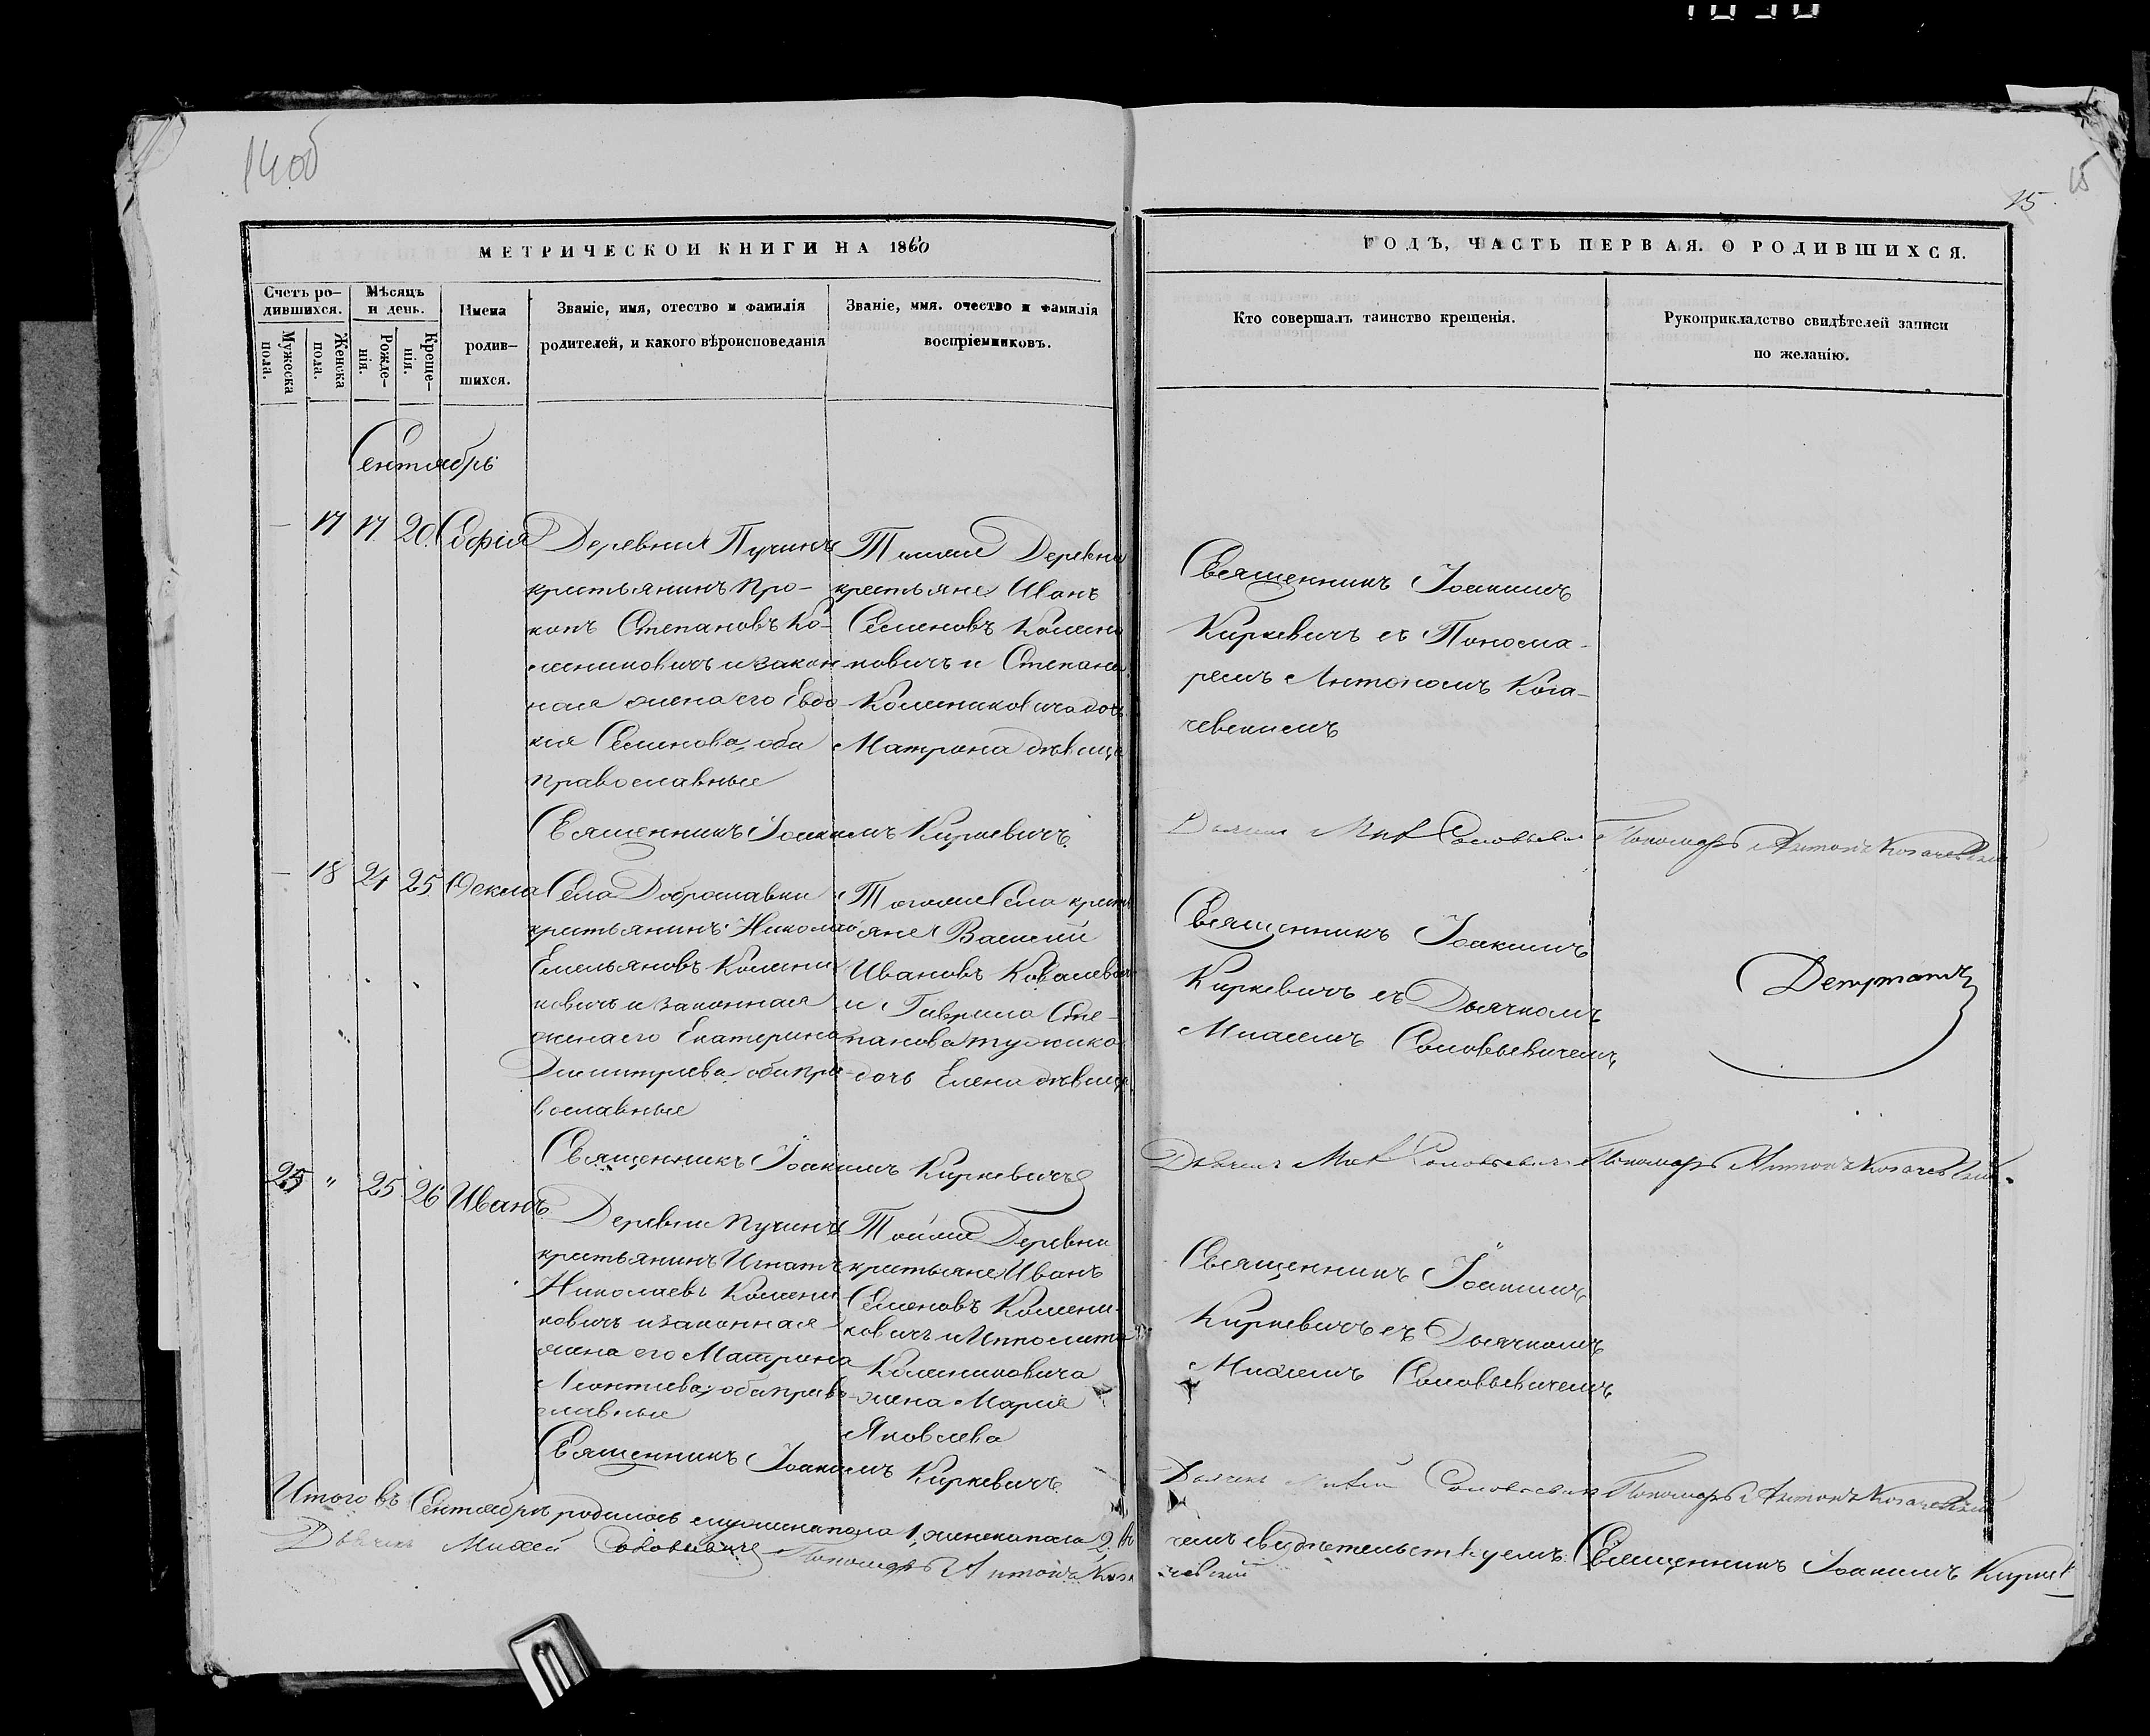 14 об
15
15
МЕТРИЧЕСКОИ КНИГИ НА 1860
ГОДЪ, ЧАСТЬ ПЕРВАЯ. О РОДИВШИХСЯ.
Счетъ ро-
дившихся.
Мужеска
пола.
Женска
пола.
Мѣсяцъ
и день.
Рожде-
нія.
Креще-
нія.
Имена
родив-
шихся.
Званіе, имя, отество и фамилія
родителей, и какого вѣроисповеданія
Званіе, имя. очество и фамилія
воспріемниковъ.
Кто совершалъ таинство крещенія.
Рукоприкладство свидѣтелей записи
по желанію.
Сентябрь
— 17 17 20. Софія
Деревни Пучинъ
крестьянинъ Про-
копъ Степановъ Ко-
лениковичъ и закон-
ная жена его Евдо-
кия Семинова, оба
православные
Тойже Деревни
крестьяне Иванъ
Семеновъ Колени
ковичъ и Степана
Колениковича дочь
Матрона дѣвица
Священникъ Іоакимъ
Киркевичъ съ Понома-
ремъ Антономъ Кога-
чевскимъ
Священникъ Іоакимъ Киркевичъ
Дьячекъ Мих Соловьевич Пономарь Антонъ Когачевский
— 18 24 25. Фекла
Села Доброславки
крестьянинъ Николай
Емельяновъ Колени
ковичъ и законная
жена его Екатерина
Димитрiева оба пра-
вославные
Тогоже Села кресть
яне Василий
Ивановъ Ковалевич
и Гаврила Сте-
панова
дочь Елена дѣвица
Священникъ Іоакимъ
Киркевичъ съ Дьячкомъ
Михеемъ Соловьевичемъ
Депутатъ
Священникъ Іоакимъ Киркевичъ
Дьячекъ Мих Соловьевич Пономарь Антонъ Когачевский
25 " 25 26 Иванъ
Деревни Пучинъ
крестьянинъ Игнатъ
Николаевъ Колени
ковичъ и законная
жена его Матрона
Леонтиева, оба прав
славные
Тойже Деревни
крестьяне Иванъ
Семеновъ Колени-
ковичъ и Ипполита
Колениковича
жена Марiя
Яковлева
Священникъ Іоакимъ
Киркевичъ съ Дьячкомъ
Михеемъ Соловьевичемъ
Священникъ Іоакимъ Киркевичъ
Дьячекъ Михей Соловьевич Пономарь Антонъ Когачевский
Итого въ Сентябрѣ родилось мужеска пола 1, женска пола 2. въ
чемъ свидѣтельствуемъ: Священникъ Іоакимъ Киркев
Дьячекъ Михей Соловьевичъ Пономарь Антонъ Кога
чевский